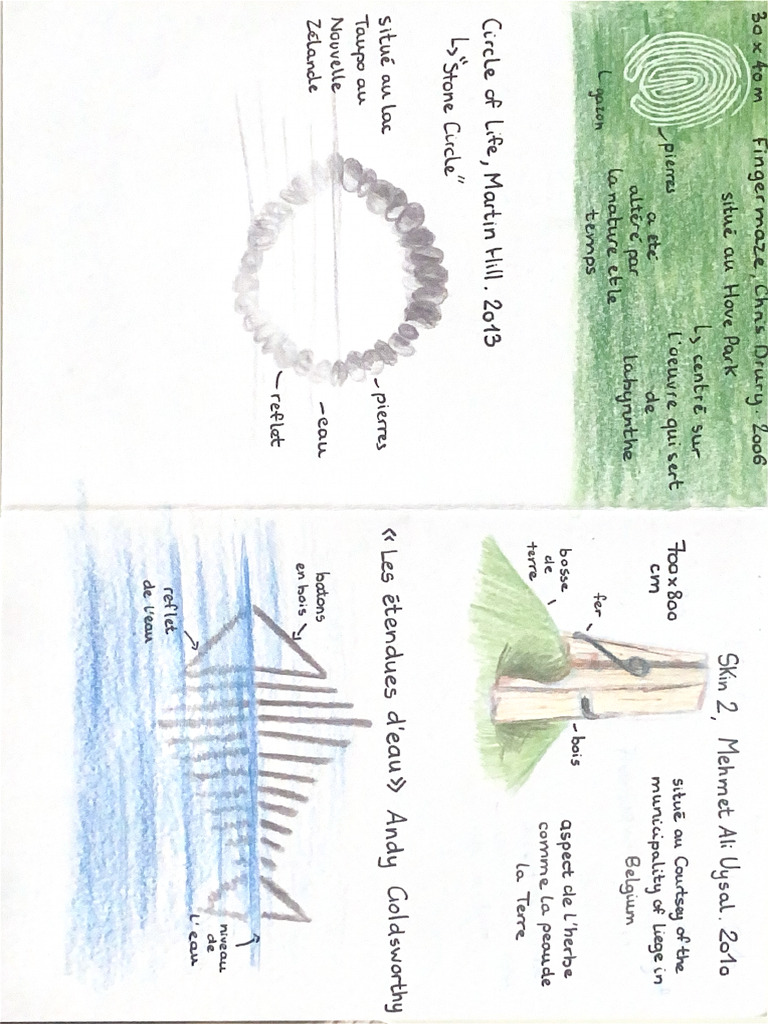 30 x 40 m Fingermaze, Chris Drury. 2006
situé au Hove Park
↳ centré sur
l'oeuvre qui sert
de
labyrinthe
pierres
gazon
a été
altéré par
la nature et le
temps
Circle of Life, Martin Hill. 2013
↳ "Stone Circle"
situé au lac
Taupo au
Nouvelle
Zélande
pierres
eau
reflet
Skin 2, Mehmet Ali Uysal. 2010
700 x 800
cm
situé au Courtsey of the
municipality of Liege in
Belgium
fer
bosse
de
terre
bois
aspect de l'herbe
comme la peau de
la Terre
« Les étendues d'eau » Andy Goldsworthy
batons
en bois
reflet
de l'eau
niveau
de
l'eau